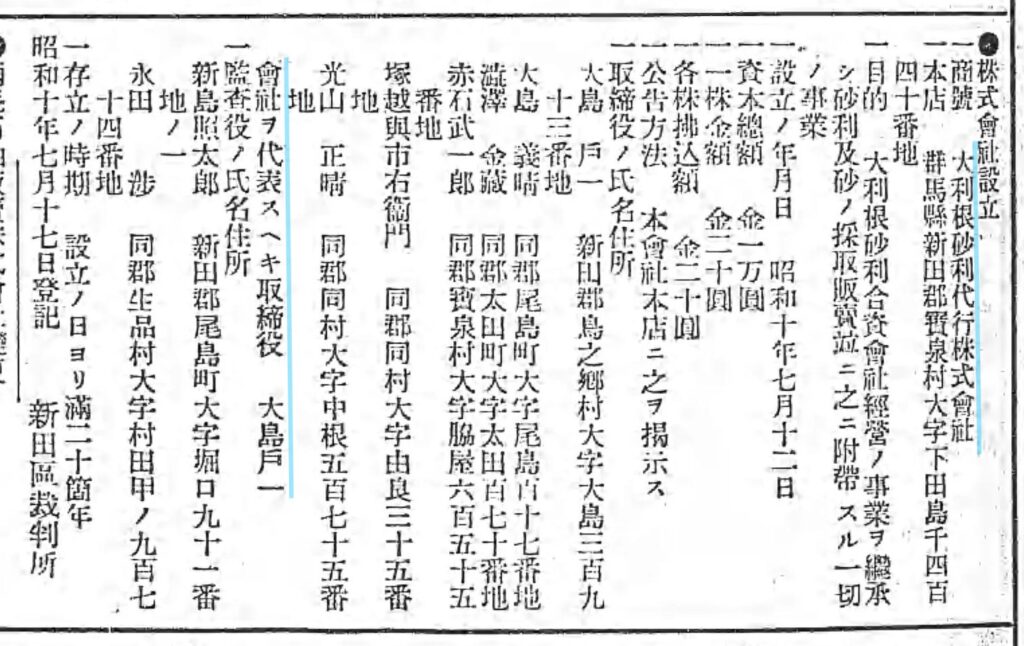 ●株式會社設立
一商號　大利根砂利代行株式會社
一本店　群馬縣新田郡寳泉村大字下田島千四百
四十番地
一目的　大利根砂利合資會社經營ノ事業ヲ繼承
シ砂利及砂ノ採取販賣並ニ之ニ附帶スル一切
ノ事業
一設立ノ年月日　昭和十年七月十二日
一資本總額　金一万圓
一一株金額　金二十圓
一各株拂込額　金二十圓
一公告方法　本會社本店ニ之ヲ揭示ス
一取締役ノ氏名住所
大島　戶一　新田郡鳥之鄕村大字大島三百九
十三番地
大島　義晴　同郡尾島町大字尾島百十七番地
澁澤　金藏　同郡太田町大字太田百七十番地
赤石武一郎　同郡寳泉村大字脇屋六百五十五
番地
塚越與市右衞門　同郡同村大字由良三十五番
地
光山　正晴　同郡同村大字中根五百七十五番
地
會社ヲ代表スヘキ取締役　大島戶一
一監査役ノ氏名住所
新島照太郎　新田郡尾島町大字堀口九十一番
地ノ一
永田　渉　同郡生品村大字村田甲ノ九百七
十四番地
一存立ノ時期　設立ノ日ヨリ滿二十箇年
昭和十年七月十七日登記　新田區裁判所